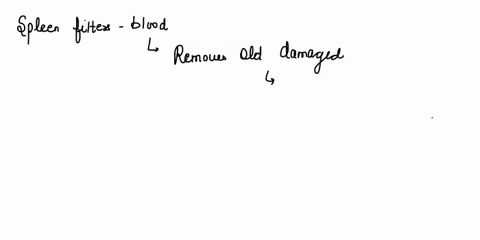 Spleen filters - blood
↳ Removes old damaged
↳